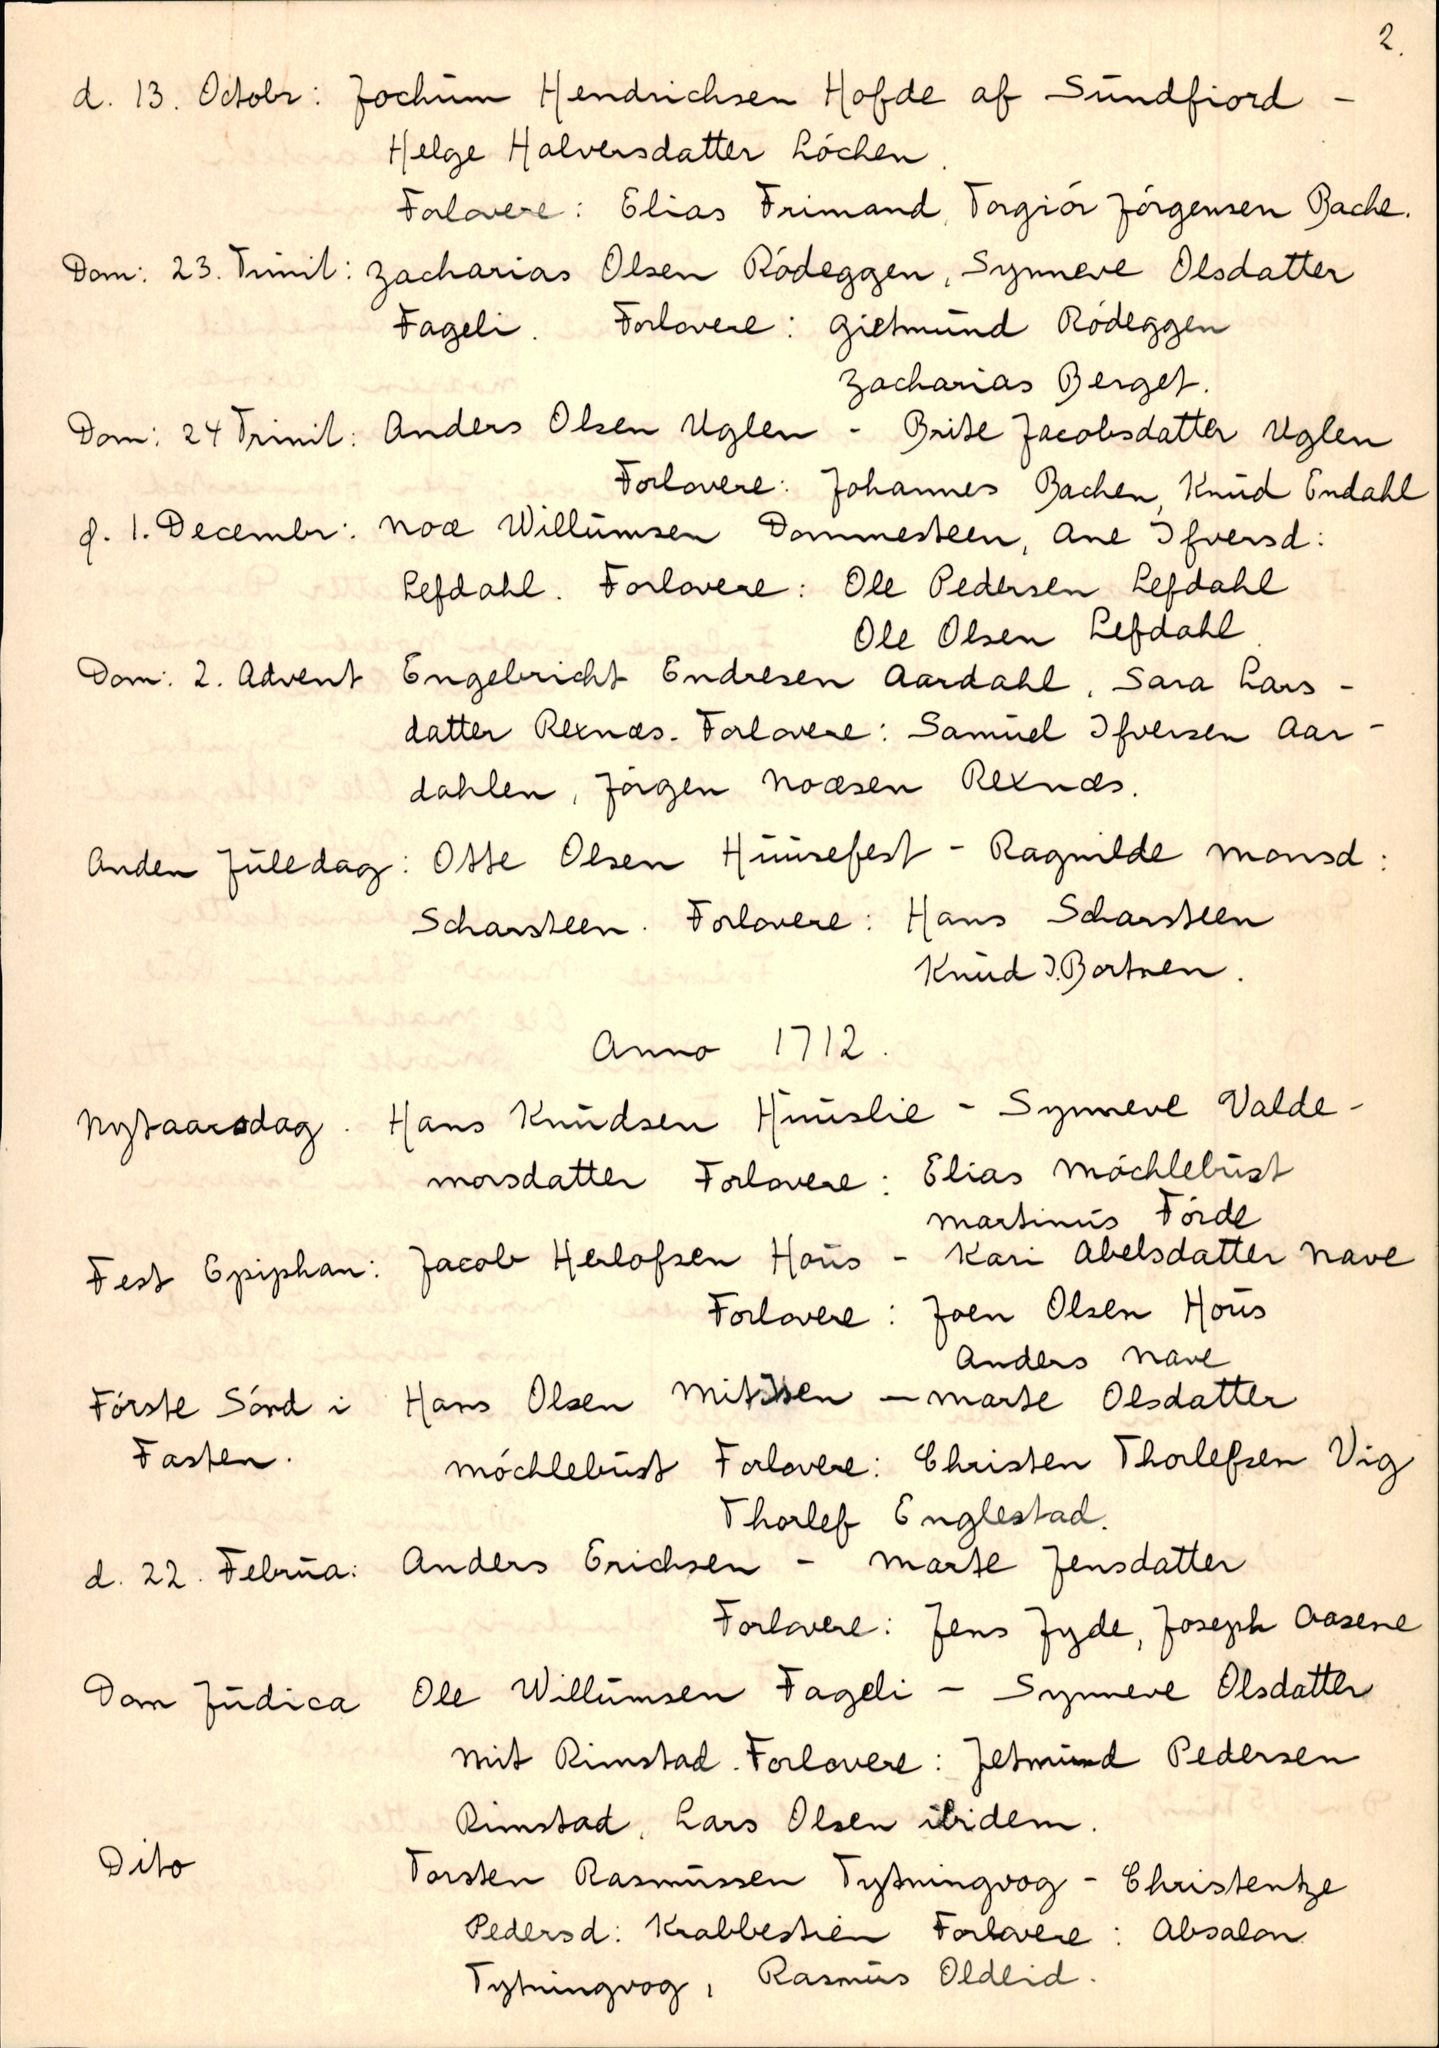 2.
d. 13. Octobr: Jochum Hendrichsen Hofde af Sündfiord -
Helge Halversdatter Löchen.
Forlovere: Elias Frimand, Torgiör Jörgensen Bache.
Dom: 23. Trinit: Zacharias Olsen Rödeggen, Synneve Olsdatter
Fageli. Forlovere: Gietmünd Rödeggen
Zacharias Berget.
Dom: 24 Trinit: Anders Olsen Uglen - Brite Jacobsdatter Uglen
Forlovere: Johannes Bachen, Knüd Endahl
d. 1. Decembr: Noæ Willümsen Dommesteen, Ane Ifversd:
Lefdahl. Forlovere: Ole Pedersen Lefdahl
Ole Olsen Lefdahl.
Dom: 2. Advent Engebricht Endresen Aardahl, Sara Lars-
datter Rexnæs. Forlovere: Samüel Ifversen Aar-
dahlen, Jörgen Noæsen Rexnæs.
Anden Jüledag: Otte Olsen Hüüsefest - Ragnilde Monsd:
Scharsteen. Forlovere: Hans Scharsteen
Knüd I. Bortnen.
Anno 1712.
Nytaarsdag. Hans Knüdsen Hüüslie - Synneve Valde-
morsdatter Forlovere: Elias Möchlebüst
Martinüs Förde
Fest Epiphan: Jacob Herlofsen Hoüs - Kari Abelsdatter Nave
Forlovere: Joen Olsen Hoüs
Anders Nave
Förste Sönd i Hans Olsen - Marte Olsdatter
Fasten. Möchlebüst Forlovere: Christen Thorlefsen Vig
Thorlef Englestad.
d. 22. Febrüa: Anders Erichsen - Marte Jensdatter
Forlovere: Jens Jyde, Joseph Aasene
Dom Jüdica Ole Willümsen Fageli - Synneve Olsdatter
Mit Rimstad. Forlovere: Jetmünd Pedersen
Rimstad, Lars Olsen ibidem.
Dito Torsten Rasmüssen Tytningvog - Christentze
Pedersd: Krabbestien Forlovere: Absalon
Tytningvog, Rasmüs Oldeid.